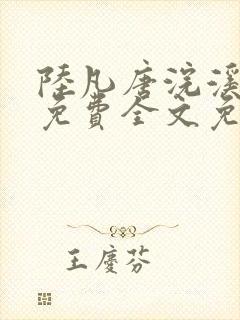 陸凡唐浣溪
免費全文免
王慶芬